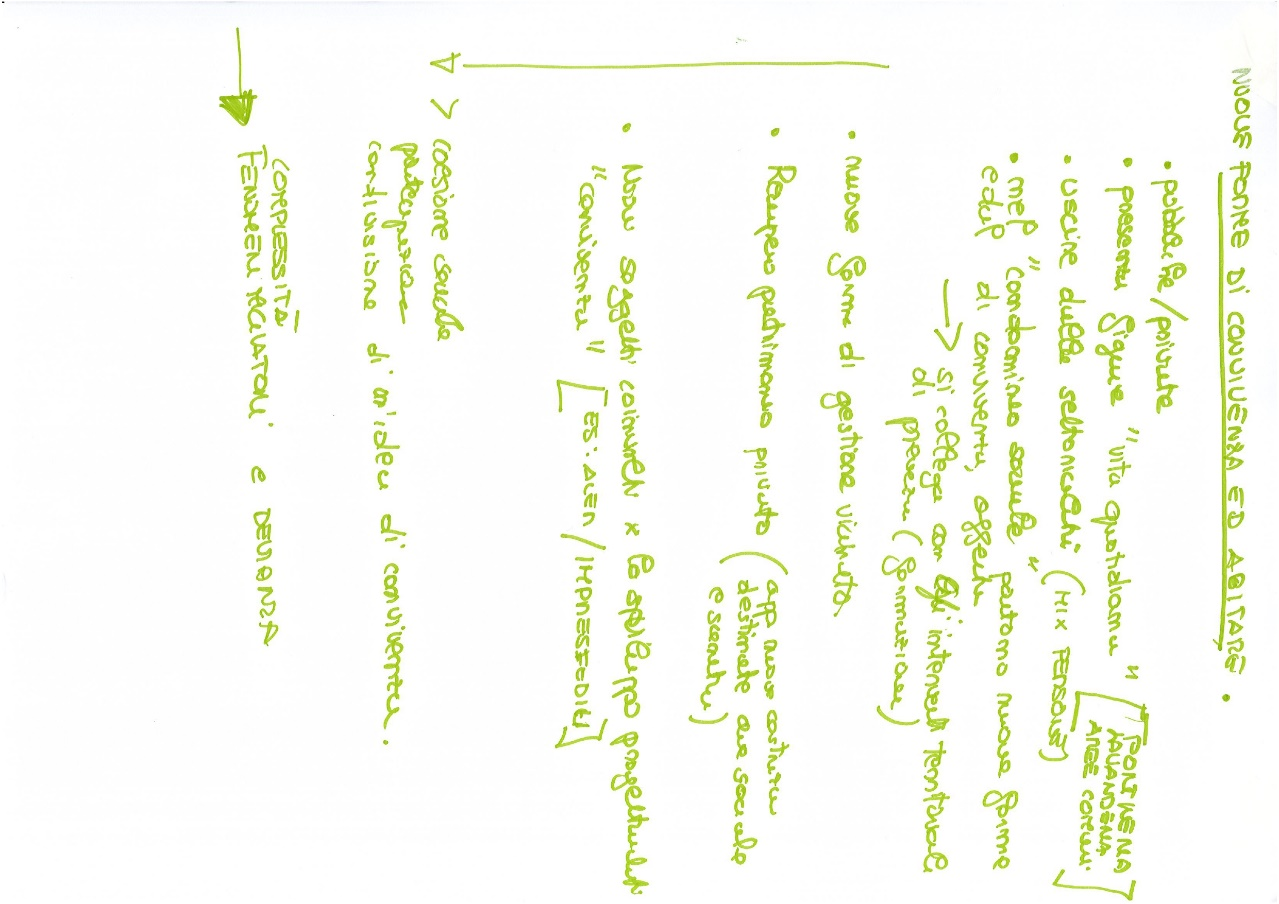 NUOVE FORME DI CONVIVENZA ED ABITARE.
• pubbliche/private
• presenta figure "vita quotidiana" [PORTINERIA
LAVANDERIA
AREE COMUNI]
• uscire dalle settorialità (MIX PERSONE)
• nei "condominio sociale" portano nuove forme
edif di convivenza, oggetti
→ si collega con gli interventi territoriali
di prevenz (formazione)
• nuove forme di gestione vicinato
• Recupero patrimonio privato (app nuova costruz
destinate a uso sociale
e scambi)
• Nuovi soggetti coinvolti x lo sviluppo progettualità
"convivente" [ES: ALER / IMPRESE EDILI]
> coesione sociale
partecipazione
condivisione di un'idea di convivenza.
COMPLESSITÀ
FENOMENI MIGRATORI e DEVIANZA